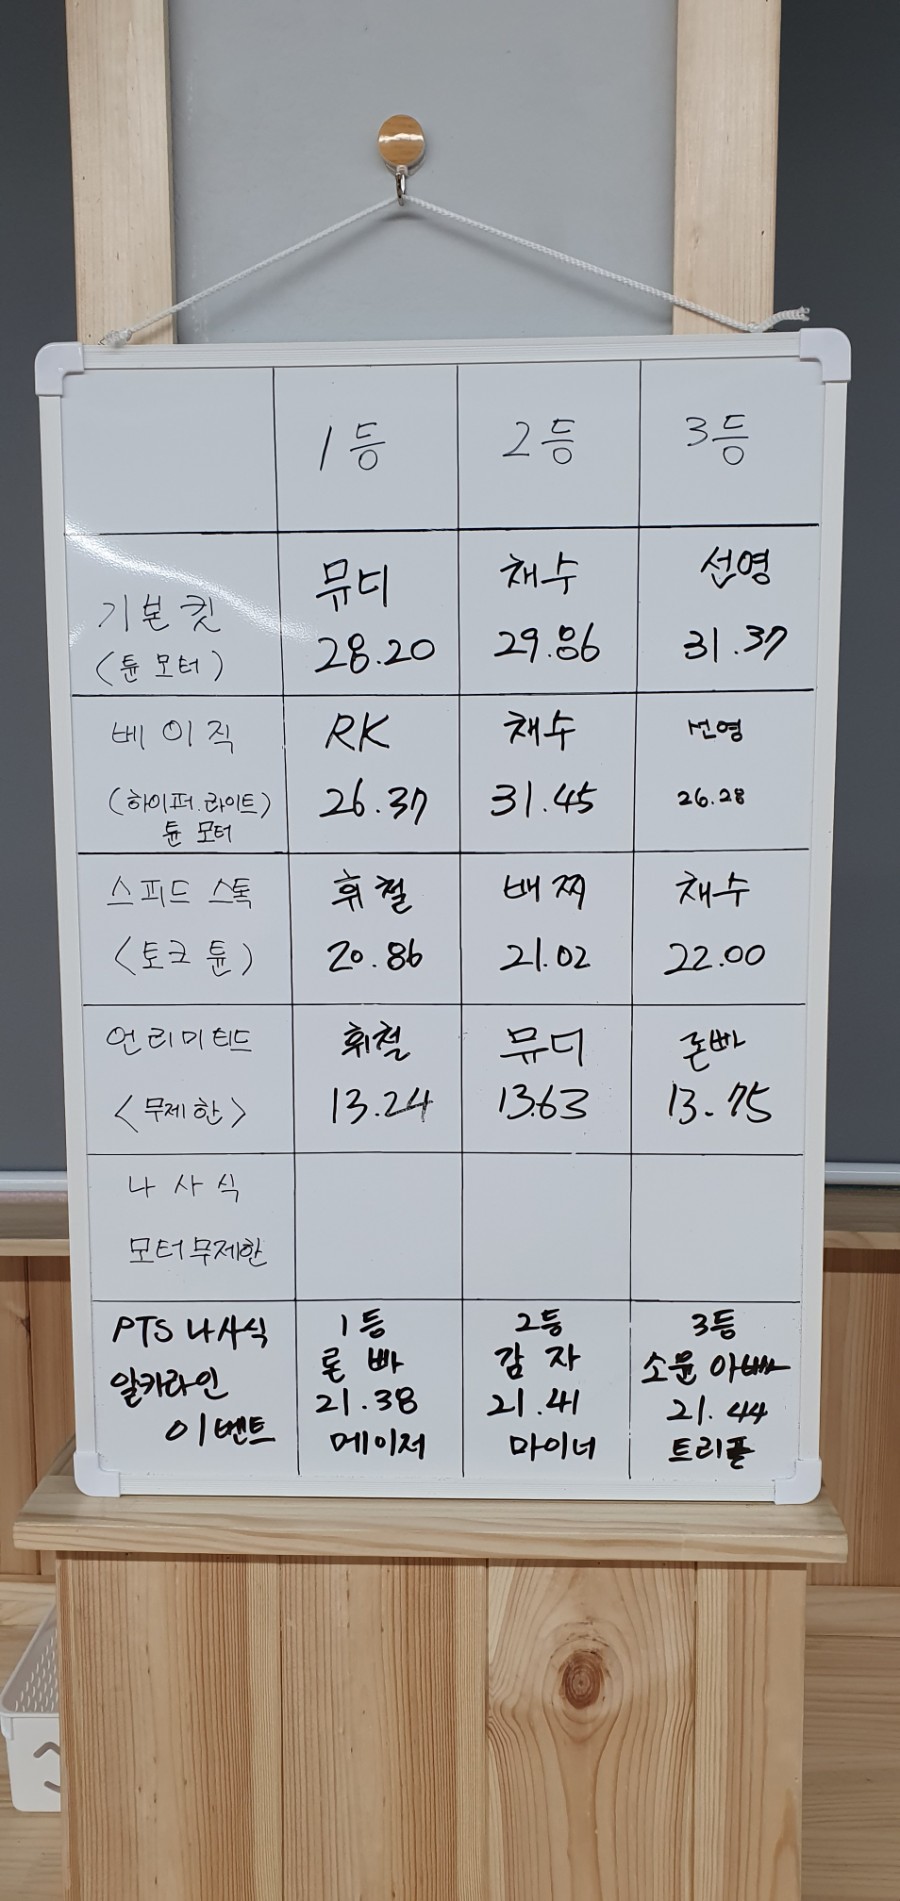 1등 2등 3등
뮤디 채수 선영
기본킷 28.20 29.86 31.37
(튠 모터)
베이직 RK 채수 선영
(하이퍼.라이트) 26.37 31.45 26.28
튠 모터
스피드 스톡 휘철 배찌 채수
<토크 튠) 20.86 21.02 22.00
언리미티드 휘철 뮤디 론빠
<무제한> 13.24 13.63 13.75
나사식
모터무제한
PTS 나사식 1등 2등 3등
론빠 감자 소문아빠
알카라인 21.38 21.41 21.44
이벤트 메이저 마이너 트리플